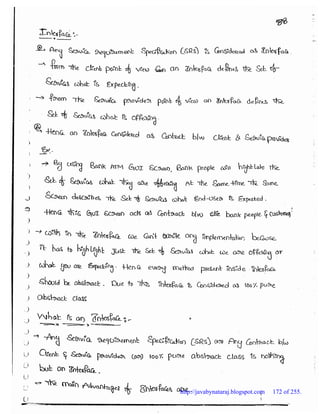 98
Interface :-
Any Service requirement Specification (SRS) is Considered as Interface
→ from the client point of view an Interface defines the Set of
Services what is Expecting.
→ from the Service provider point of view an Interface defines the
Set of Services what is offering
Hence an Interface Considered as Contract b/w client & Service provider
Ex:-
→ By using Bank ATM GUI Screen, Bank people can highlight the
Set of Services what they are offering At the Same time the Same
Screen describes the Set of Services what End-user is Expected.
Hence this GUI Screen acts as Contract b/w the bank people & customer
→ with in the Interface we Can't write any implementation because
it has to highlight Just the Set of Services what we are offering or
what you are Expecting. Hence every method present inside Interface
Should be abstract. Due to this, Interface is Considered as 100% pure
abstract class
What is an Interface :-
→ Any Service requirement Specification (SRS) (or) Any Contract b/w
Client & Service provider (or) 100% pure abstract class is nothing
but an Interface.
→ The main Advantages of Interfaces are
http://javabynataraj.blogspot.com 172 of 255.